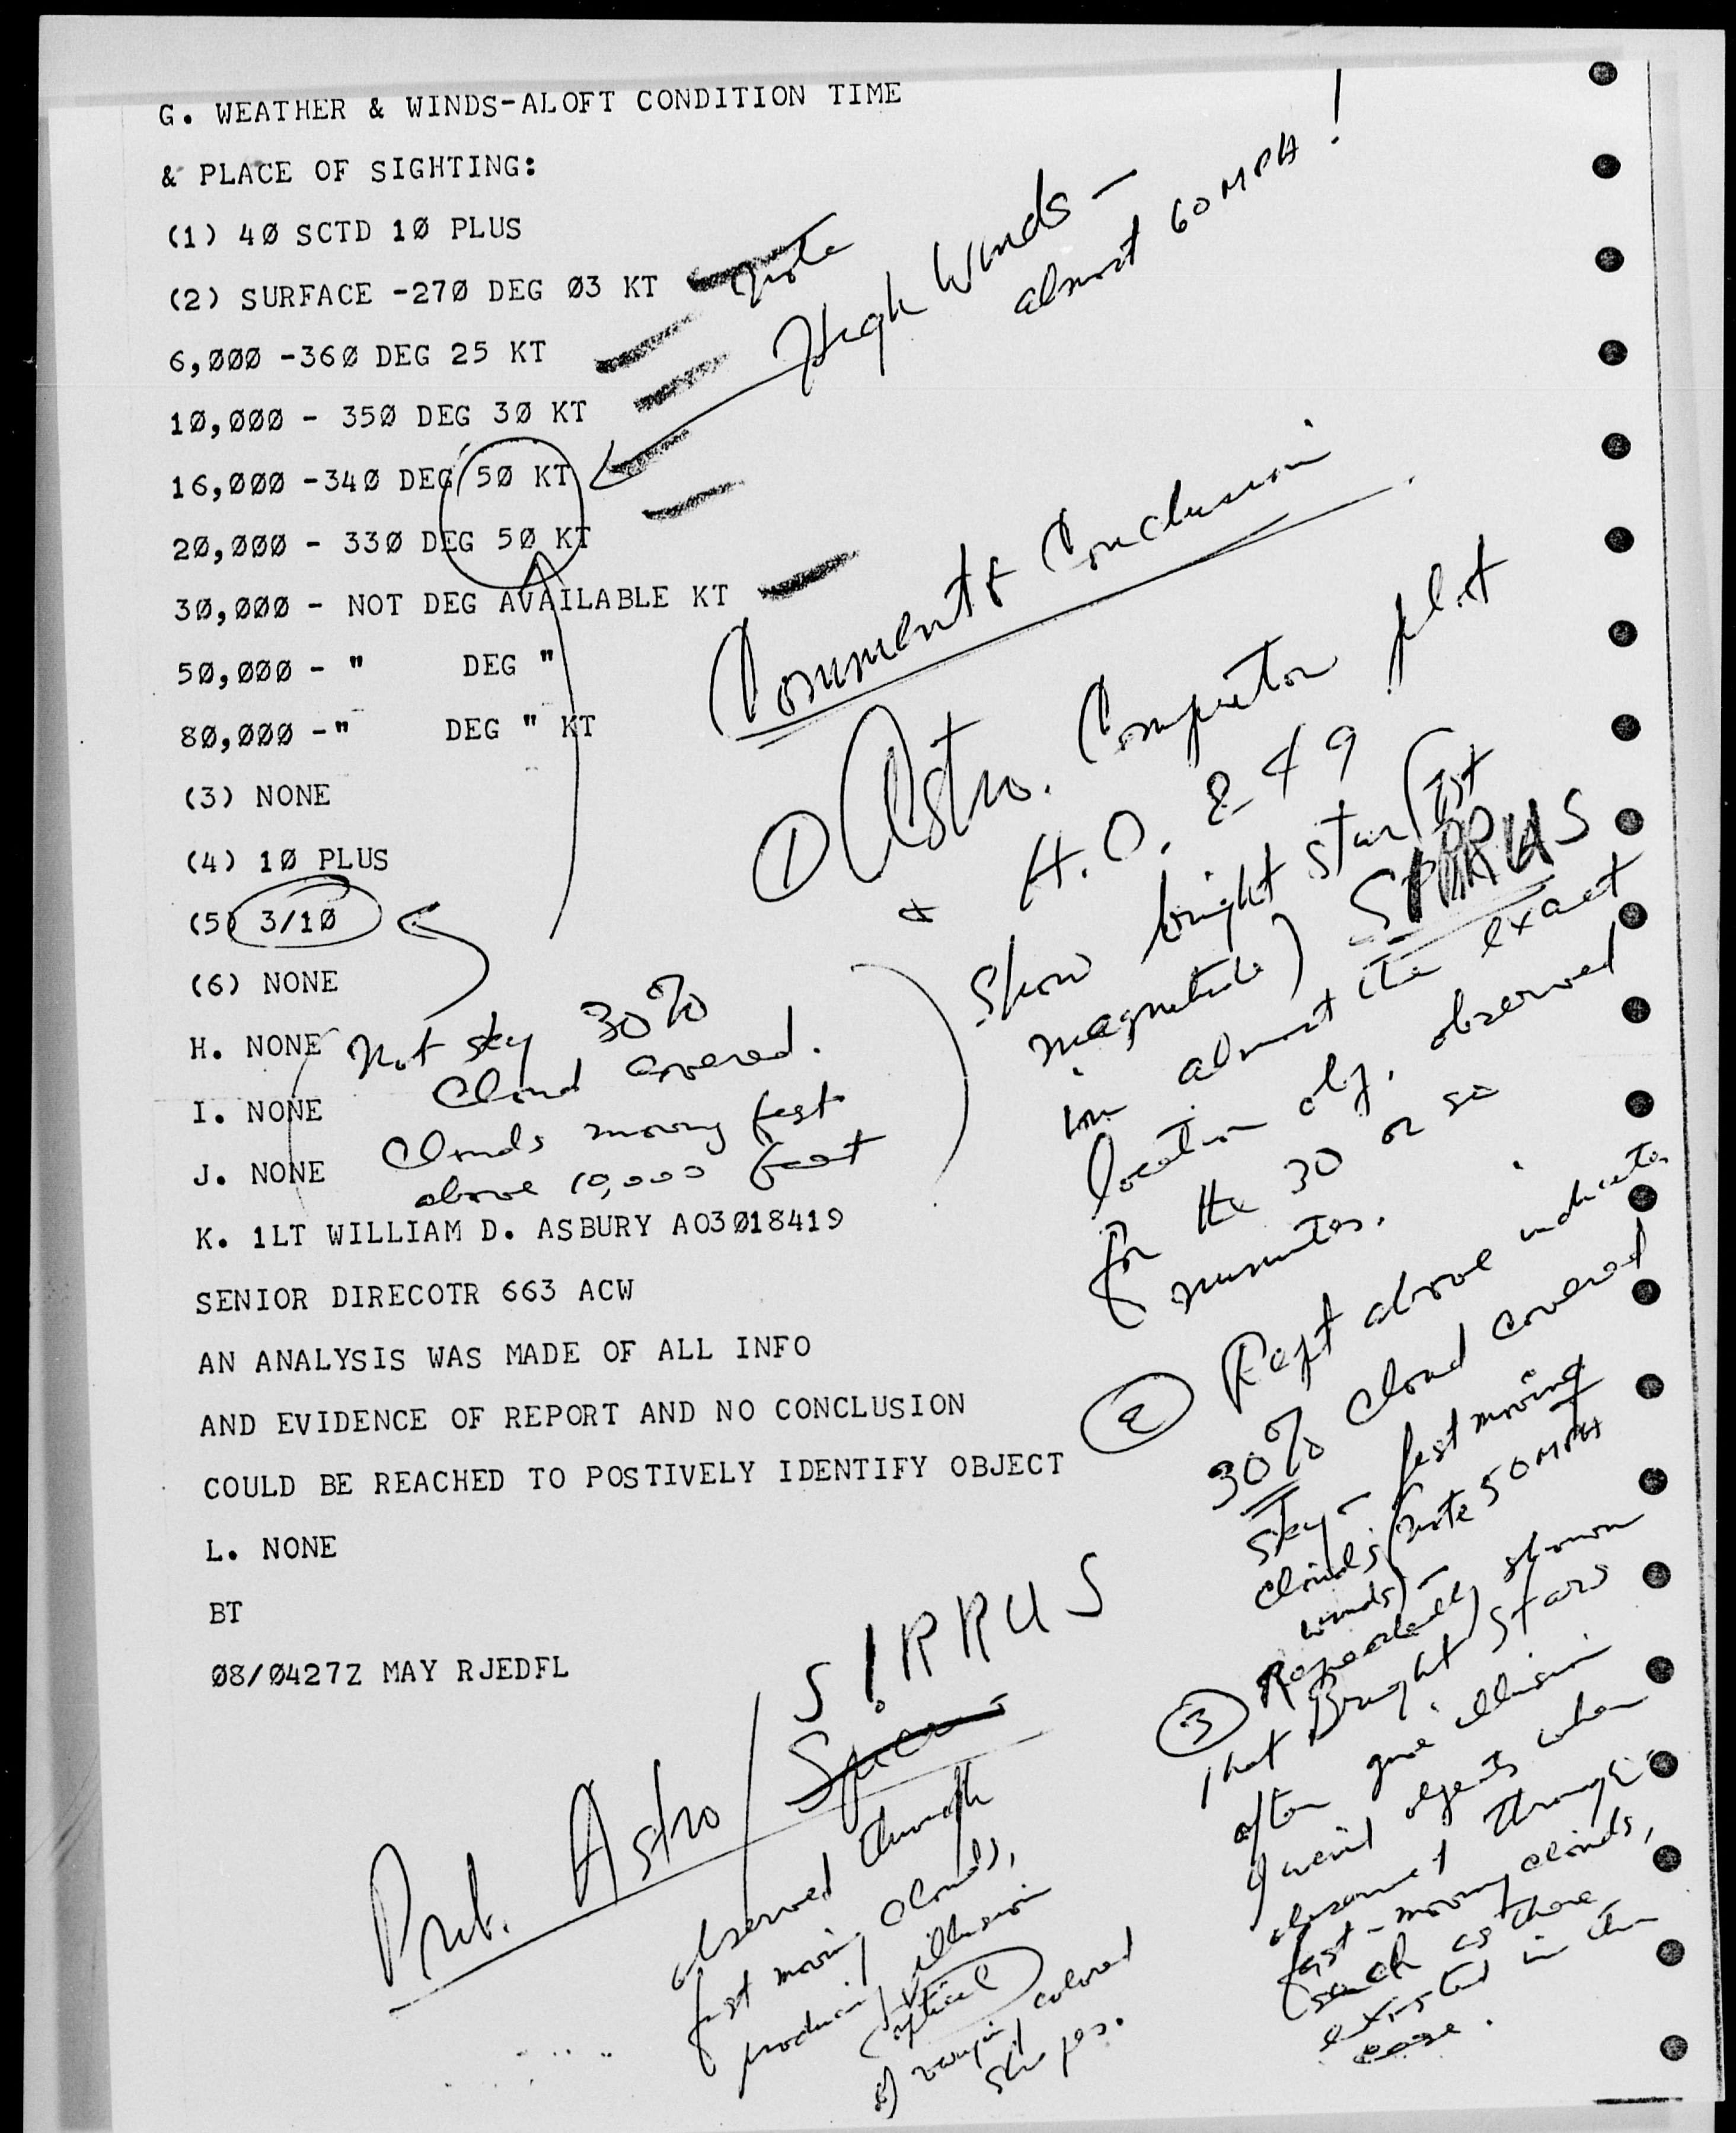 G. WEATHER & WINDS-ALOFT CONDITION TIME
& PLACE OF SIGHTING:
(1) 4Ø SCTD 1Ø PLUS
(2) SURFACE -27Ø DEG Ø3 KT
note
6,ØØØ -36Ø DEG 25 KT
1Ø,ØØØ - 35Ø DEG 3Ø KT
16,ØØØ -34Ø DEG 5Ø KT
2Ø,ØØØ - 33Ø DEG 5Ø KT
High Winds -
almost 60 MPH!
3Ø,ØØØ - NOT DEG AVAILABLE KT
5Ø,ØØØ - " DEG "
8Ø,ØØØ -" DEG " KT
(3) NONE
(4) 1Ø PLUS
(5) 3/1Ø
(6) NONE
H. NONE
I. NONE
J. NONE
Not sky 30%
Cloud Covered.
Clouds moving fast
above 10,000 feet
K. 1LT WILLIAM D. ASBURY AO3Ø18419
SENIOR DIRECOTR 663 ACW
AN ANALYSIS WAS MADE OF ALL INFO
AND EVIDENCE OF REPORT AND NO CONCLUSION
COULD BE REACHED TO POSTIVELY IDENTIFY OBJECT
L. NONE
BT
Ø8/Ø427Z MAY RJEDFL
Comments & Conclusion
① Astro. Computor plot
& H.O. 249
Show bright star (1st
magnitude) SIRRUS
in almost the exact
location obj. observed
for the 30 or so
minutes.
② Rept above indicates
30% Cloud covered
sky - fast moving
clouds (note 50 MPH
winds) -
③ Repeatedly shown
that Bright stars
often give illusion
of weird objects when
observed through
fast-moving clouds,
such as those
existed in this
case.
Prob. Astro / SIRRUS
observed through
fast moving clouds,
producing optical illusion
of varying colored
shapes.